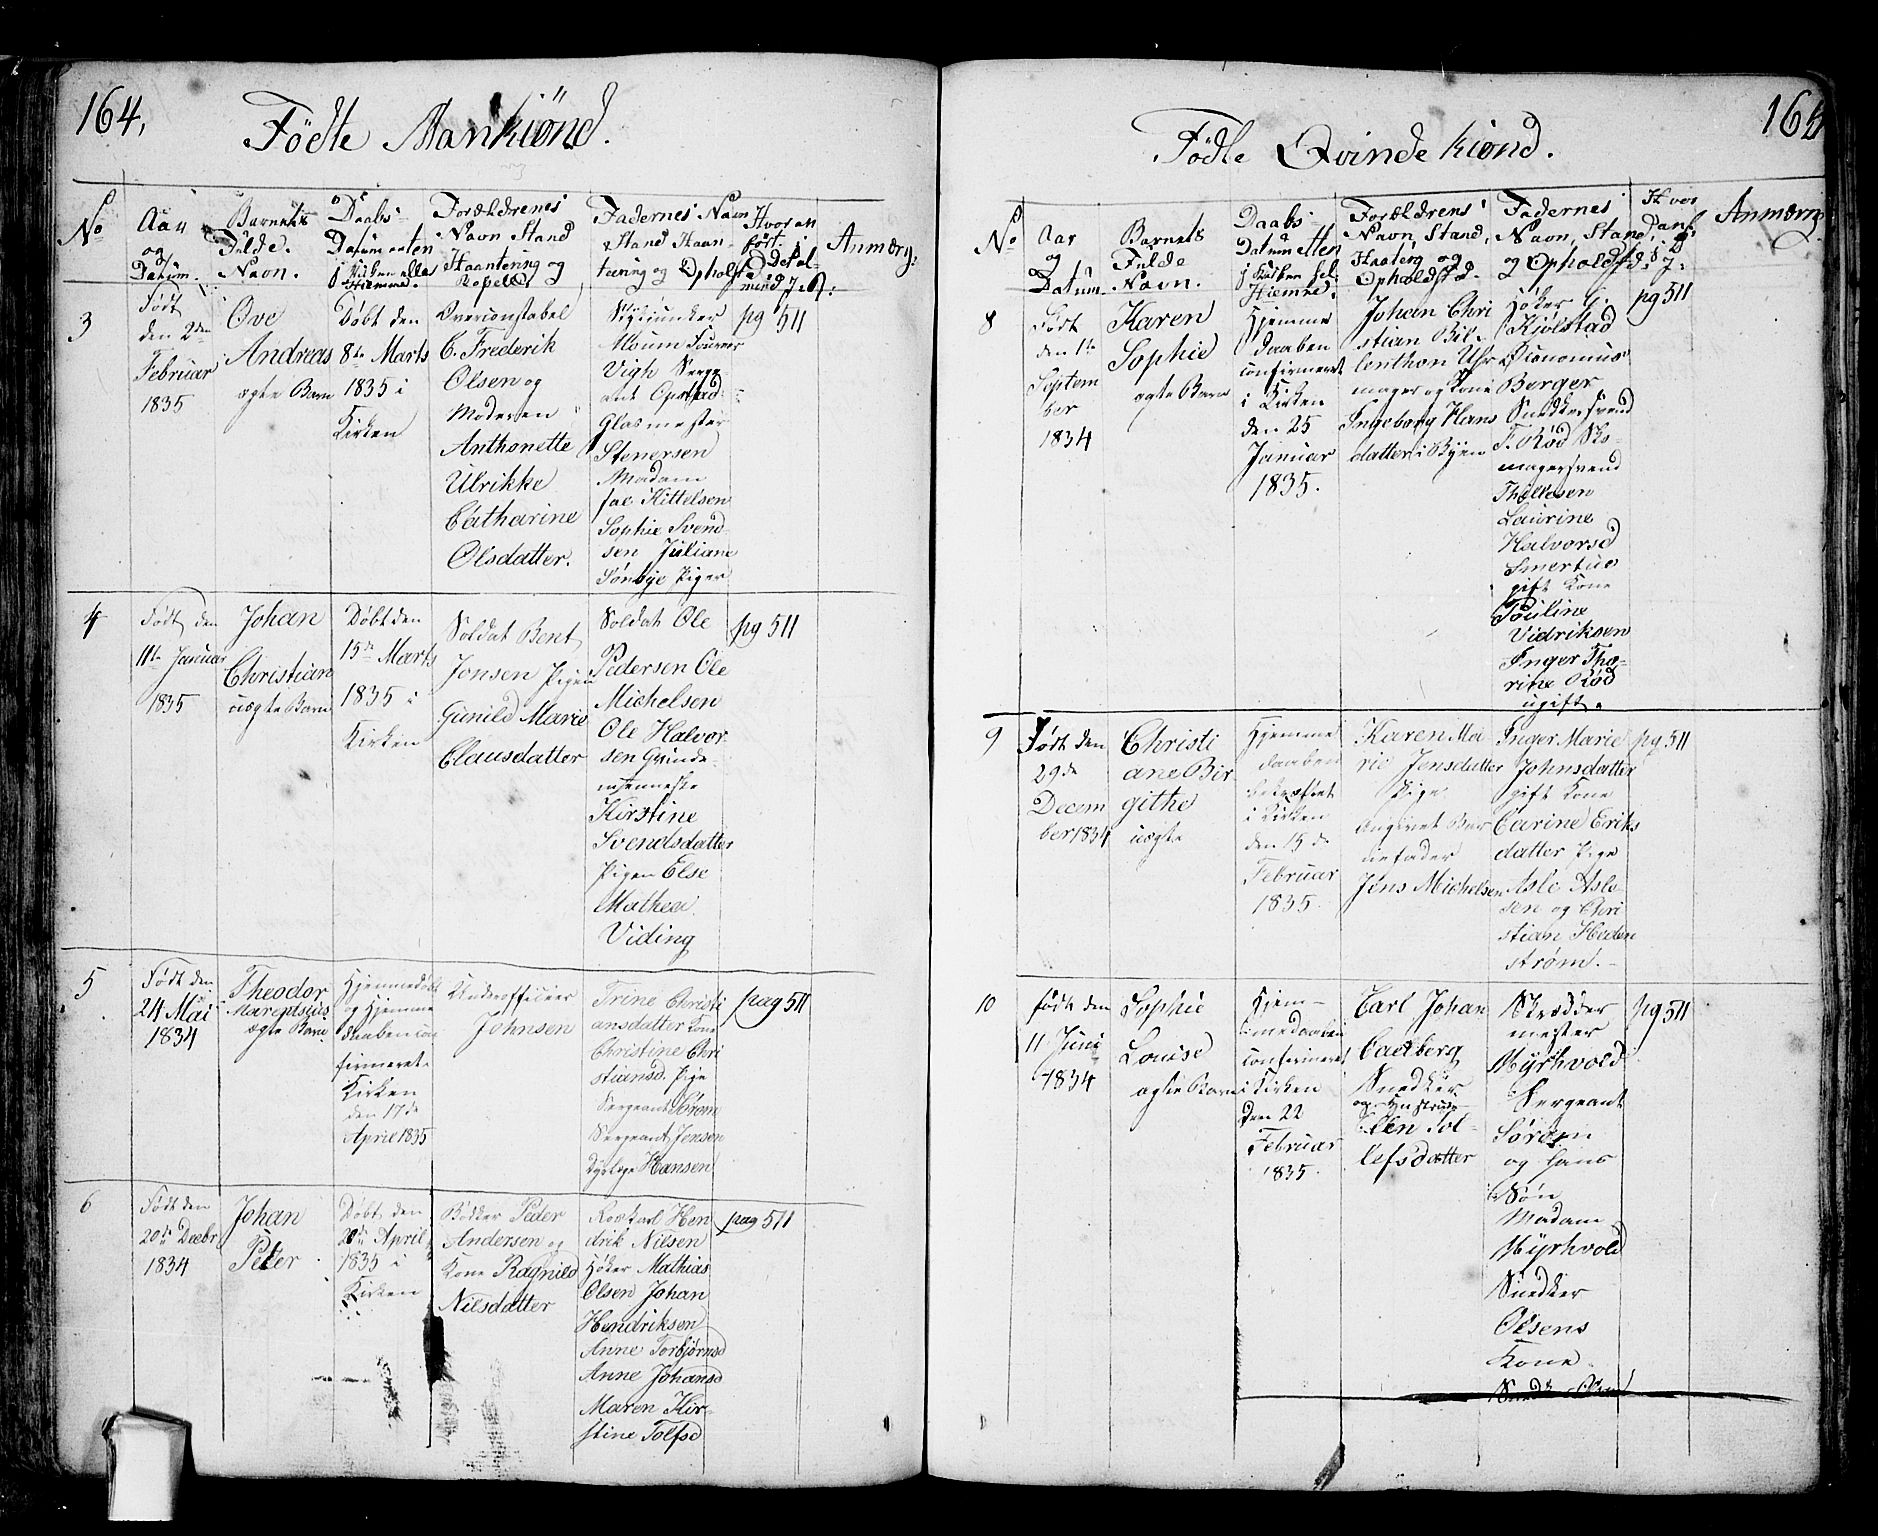 164,
Födte Mankiönd.
No
Aar
og
Datum.
Barnets
Fulde
Navn.
Daabs
Datum enten
i Kirken eller
Hiemme.
Forældrenes
Navn Stand
Haantering og
Fadernes Navn
Stand Haan-
teering og Opholst
Hvor en
ført i
Anmærg:
3
Født
den 2den
Februar
1835
Ove
Andreas
ægte Barn
Døbt den
8de Marts
1835 i
Kirken
Overconstabel
C. Frederik
Olsen og
Moderen
Anthonette
Ulrikke
Catharine
Olsdatter.
Vigh Serge-
ant Opstad
Glasmester
Stenersen
Madam
Kittelsen
Sophie Svend-
sen Juliane
Sønbye Piger
pg 511
4
Født den
11te Januar
1835
Johan
Christian
uægte Barn
Døbt den
15de Marts
1835 i
Kirken
Soldat Bent
Jonsen Pigen
Gunild Marie
Clausdatter
Soldat Ole
Pedersen Ole
Michelsen
Ole Halvor
sen Qvinde-
menneske
Kirstine
Svendsdatter
Pigen Else
Mathea
Viding
pg 511
5
Født den
24 Mai
1834
Theodor
Marentsius
ægte Barn
Hjemmedøbt
og Hjemme
daaben con
firmeret
Kirken
den 17de
April 1835
Underofficeer
Johnsen
Trine Christi
ansdatter Kone
Christine Chri
stiansd. Pige
Sergeant Sörom
Sergeant Jensen
Hansen
pag 511
6
Født den
20de Decbr
1834
Johan
Peter
Døbt den
20de April
1835 i
Kirken
Bödker Peder
Andersen og
Kone Ragnild
Nilsdatter
Hen
drik Nilsen
Höker Mathias
Olsen Johan
Hendriksen
Anne Torbjørnsd
Anne Johansd
Maren Kir-
stine Tolfsd
pag 511
165
Födte Qvinde kiønd.
No
Aar
og
Datum
Barnets
Fulde
Navn.
Daabs
Datum etten
i Kirken hel.
Hiemme.
Forældrens
Navn, Stand,
Haaterg og
Opholdsted.
Fadernes
Navn, Stand,
og Opholdsted.
Hvor
Anmærg
8
Født
den 1te
Septem
ber
1834
Karen
Sophie
ægte Barn
Hjemme
daaben
confirmeret
i Kirken
den 25
Januar
1835.
Johan Chri
stian Bil-
lenthon Uhr
mager og Kone
Ingeborg Hans
datter i Byen
Höker G.
Kjölstad
Oeconomus
Berger
Snedkersvend
F. Röd Sko-
magersvend
Laurine
Halvorsd
gift Kone
Pouline
Vidriksen
Inger Tho-
rine Röd
ugift.
pg 511
9
Født den
29de
Decem
ber 1834
Christi
ane Bir
githe
uægte
Hjemme
daaben
bekræftet
i Kirken
den 15de
Februar
1835.
Karen Ma
rie Jensdatter
Pige
Angivet Bar
nefader
Jens Michelsen
Inger Marie
Johnsdatter
gift Kone
Carine Eriks
datter Pige
Asle Asle-
sen og Chri
stian Heden
strøm.
pg 511
10
Født den
11 Juni
1834
Sophie
Louise
ægte Barn
Hjem-
medaaben
confirmeret
i Kirken
Den 22
Februar
1835.
Carl Johan
Carlberg
Snedker
og Hustrue
Elen Tol-
lefsdatter
Skrædder
mester
Myrhvold
Sergeant
Sörom
og hans
Søn
Madam
Myrhvold
Snedker
Olsens
Kone
pg 511